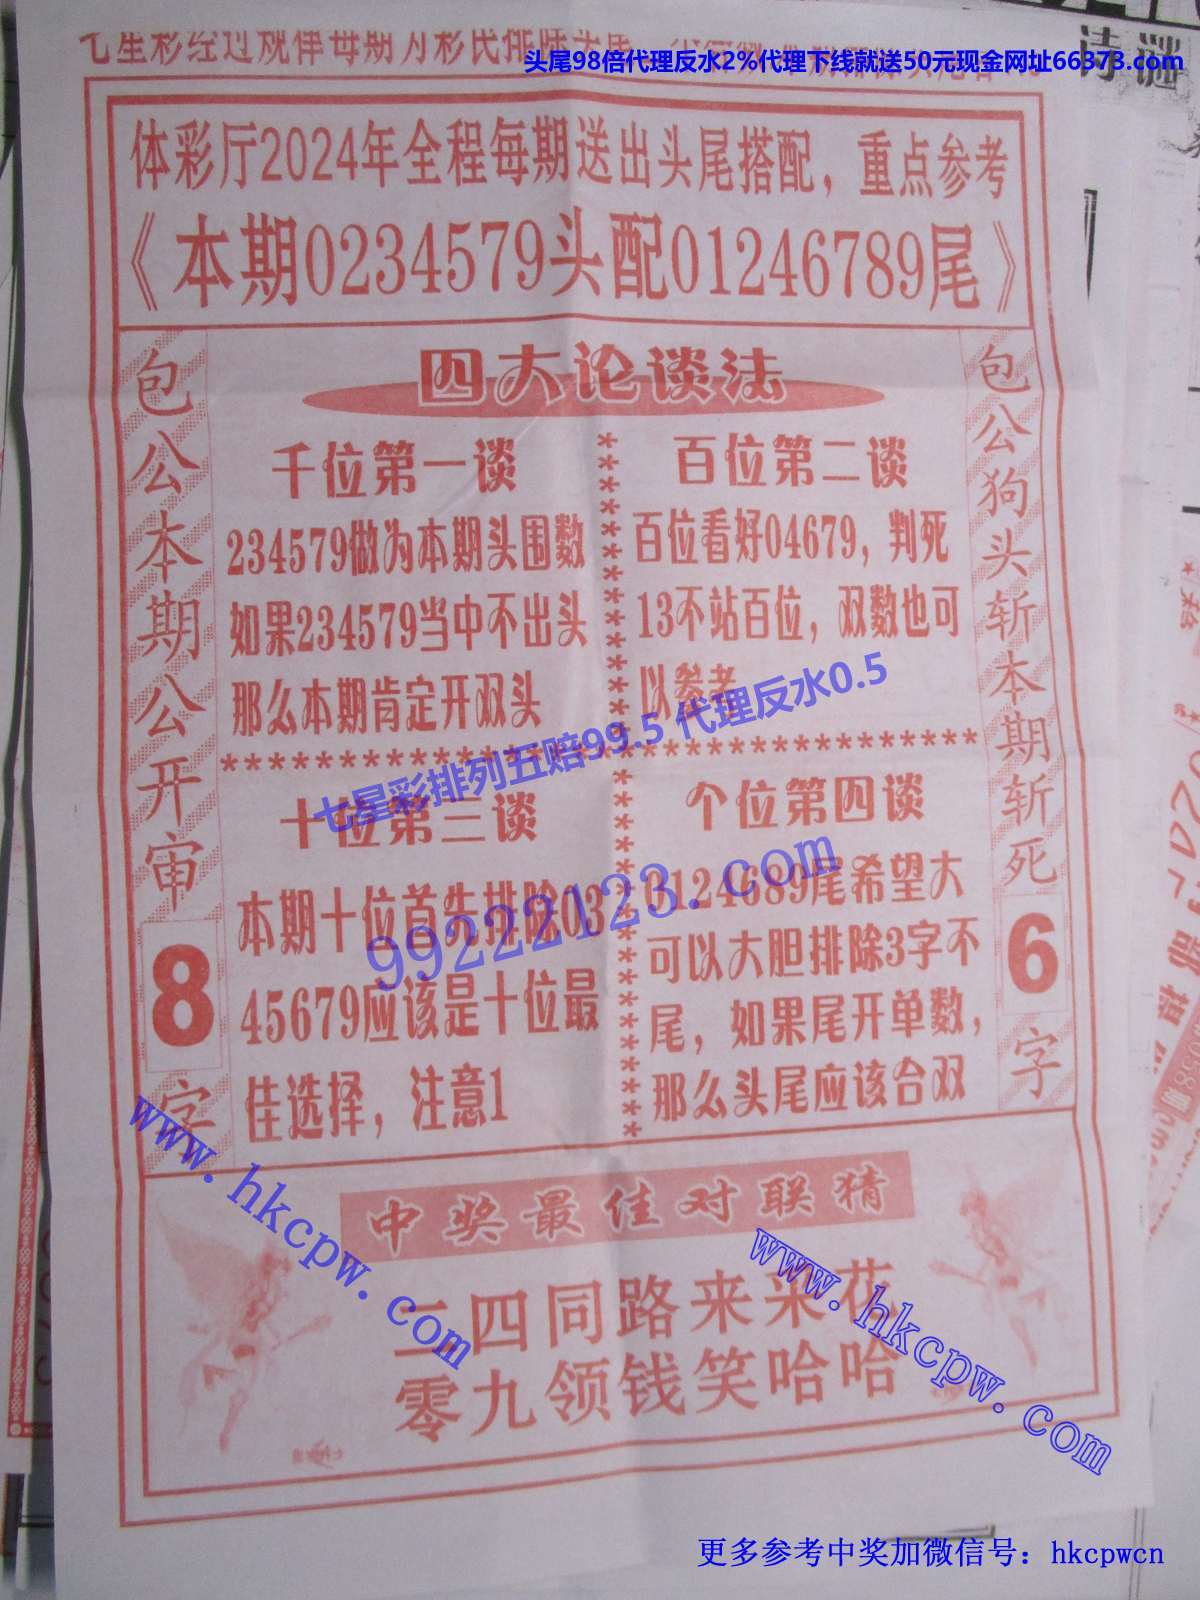 七星彩经过规律每期为彩民排除头尾
头尾98倍代理反水2%代理下线就送50元现金网址66373.com
诗谜
体彩厅2024年全程每期送出头尾搭配，重点参考
《本期0234579头配01246789尾》
包公本期公开审
8
字
四大论谈法
千位第一谈
234579做为本期头围数
如果234579当中不出头
那么本期肯定开双头
百位第二谈
百位看好04679，判死
13不站百位，双数也可
以参考
七星彩排列五赔99.5 代理反水0.5
十位第三谈
本期十位首先排除03
45679应该是十位最
佳选择，注意1
个位第四谈
0124689尾希望大
可以大胆排除3字不
尾，如果尾开单数，
那么头尾应该合双
99222123.com
包公狗头斩本期斩死
6
字
中奖最佳对联猜
二四同路来采花
零九领钱笑哈哈
www.hkcpw.com
www.hkcpw.com
更多参考中奖加微信号：hkcpwcn